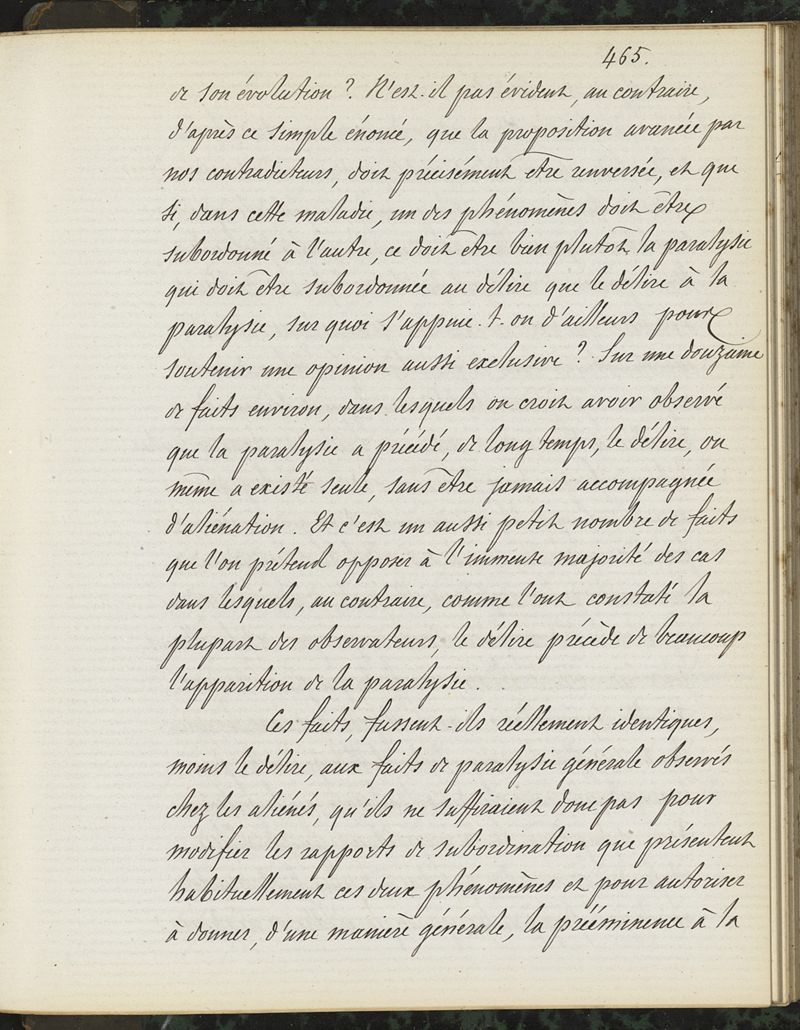 465.
de son évolution ? N'est-il pas évident, au contraire,
d'après ce simple énoncé, que la proposition avancée par
nos contradicteurs, doit précisément être renversée, et que
si, dans cette maladie, un des phénomènes doit être
subordonné à l'autre, ce doit être bien plutôt la paralysie
qui doit être subordonnée au délire que le délire à la
paralysie, sur quoi s'appuie-t-on d'ailleurs pour
soutenir une opinion aussi exclusive ? Sur une douzaine
de faits environ, dans lesquels on croit avoir observé
que la paralysie a précédé, de long temps, le délire, ou
même a existé seule, sans être jamais accompagnée
d'aliénation. Et c'est un aussi petit nombre de faits
que l'on prétend opposer à l'immense majorité des cas
dans lesquels, au contraire, comme l'ont constaté la
plupart des observateurs, le délire précède de beaucoup
l'apparition de la paralysie.
Ces faits, fussent-ils réellement identiques,
moins le délire, aux faits de paralysie générale observés
chez les aliénés, qu'ils ne suffiraient donc pas pour
modifier les rapports de subordination que présentent
habituellement ces deux phénomènes et pour autoriser
à donner, d'une manière générale, la prééminence à la